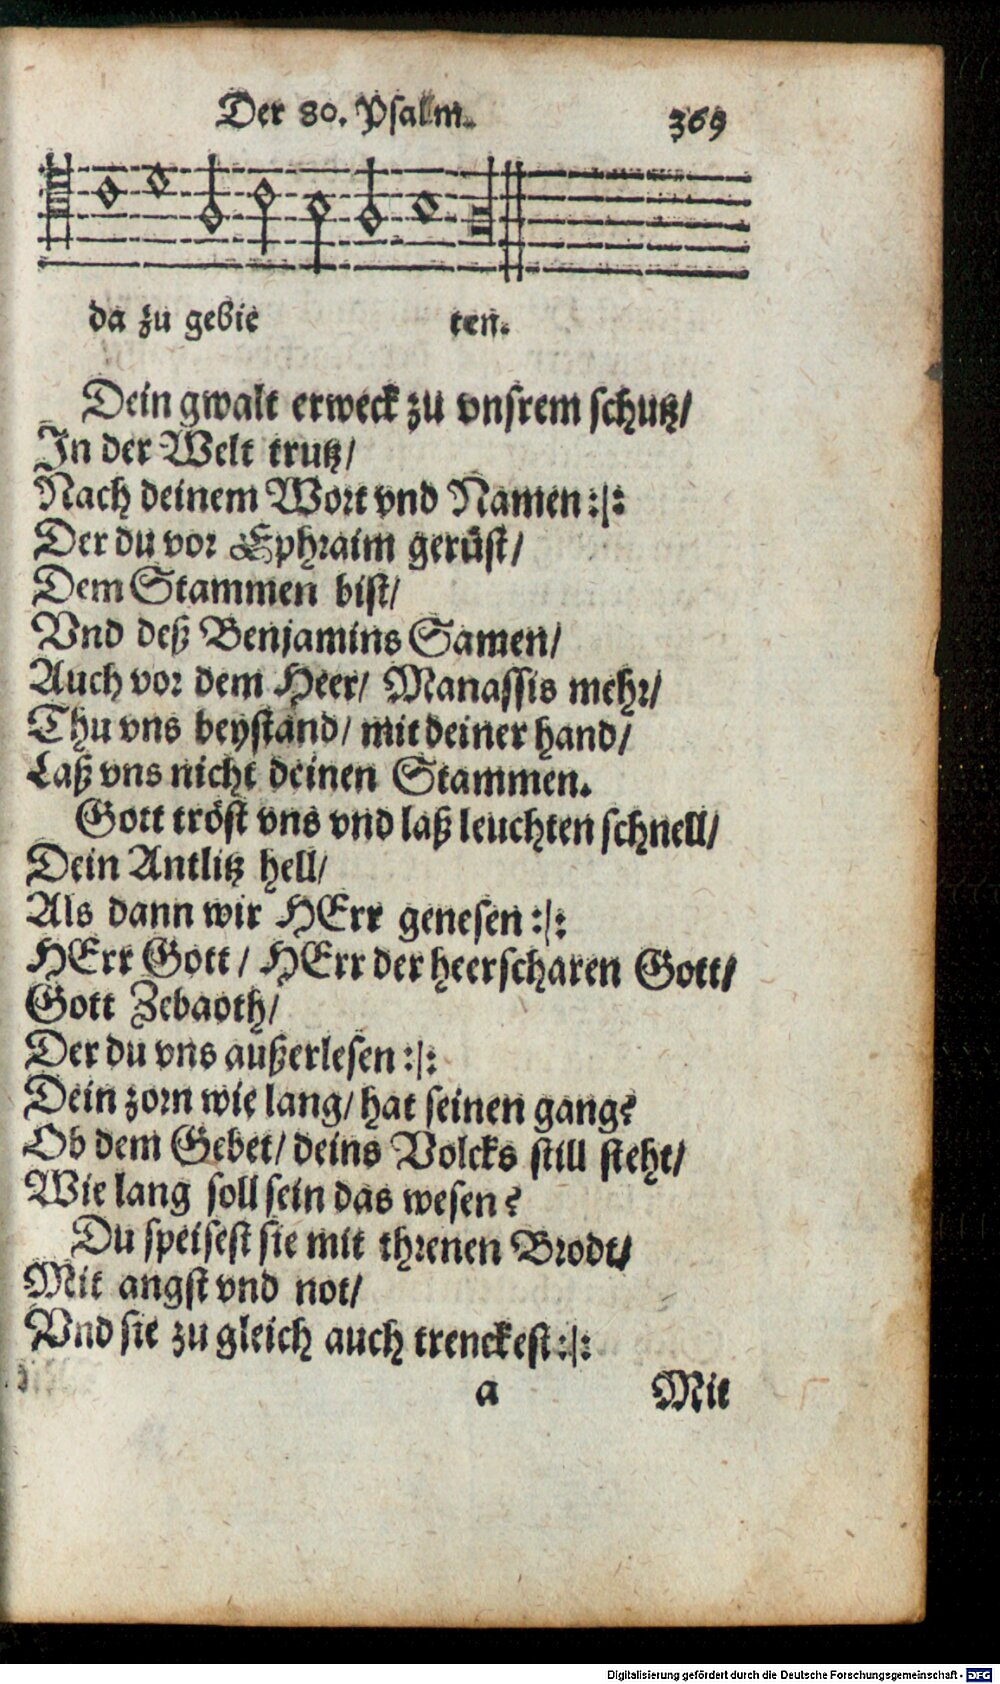 Der 80. Psalm. 369
da zu gebie ten.
Dein gwalt erweck zu vnsrem schutz/
In der Welt trutz/
Nach deinem Wort vnd Namen :|:
Der du vor Ephraim gerüst/
Dem Stammen bist/
Vnd deß Benjamins Samen/
Auch vor dem Heer/ Manassis mehr/
Thu vns beystand/ mit deiner hand/
Laß vns nicht deinen Stammen.
Gott tröst vns vnd laß leuchten schnell/
Dein Antlitz hell/
Als dann wir HErr genesen :|:
HErr Gott/ HErr der heerscharen Gott/
Gott Zebaoth/
Der du vns außerlesen :|:
Dein zorn wie lang/ hat seinen gang?
Ob dem Gebet/ deins Volcks still steht/
Wie lang soll sein das wesen?
Du speisest sie mit threnen Brodt/
Mit angst vnd not/
Vnd sie zu gleich auch trenckest :|:
a Mit
Digitalisierung gefördert durch die Deutsche Forschungsgemeinschaft - DFG